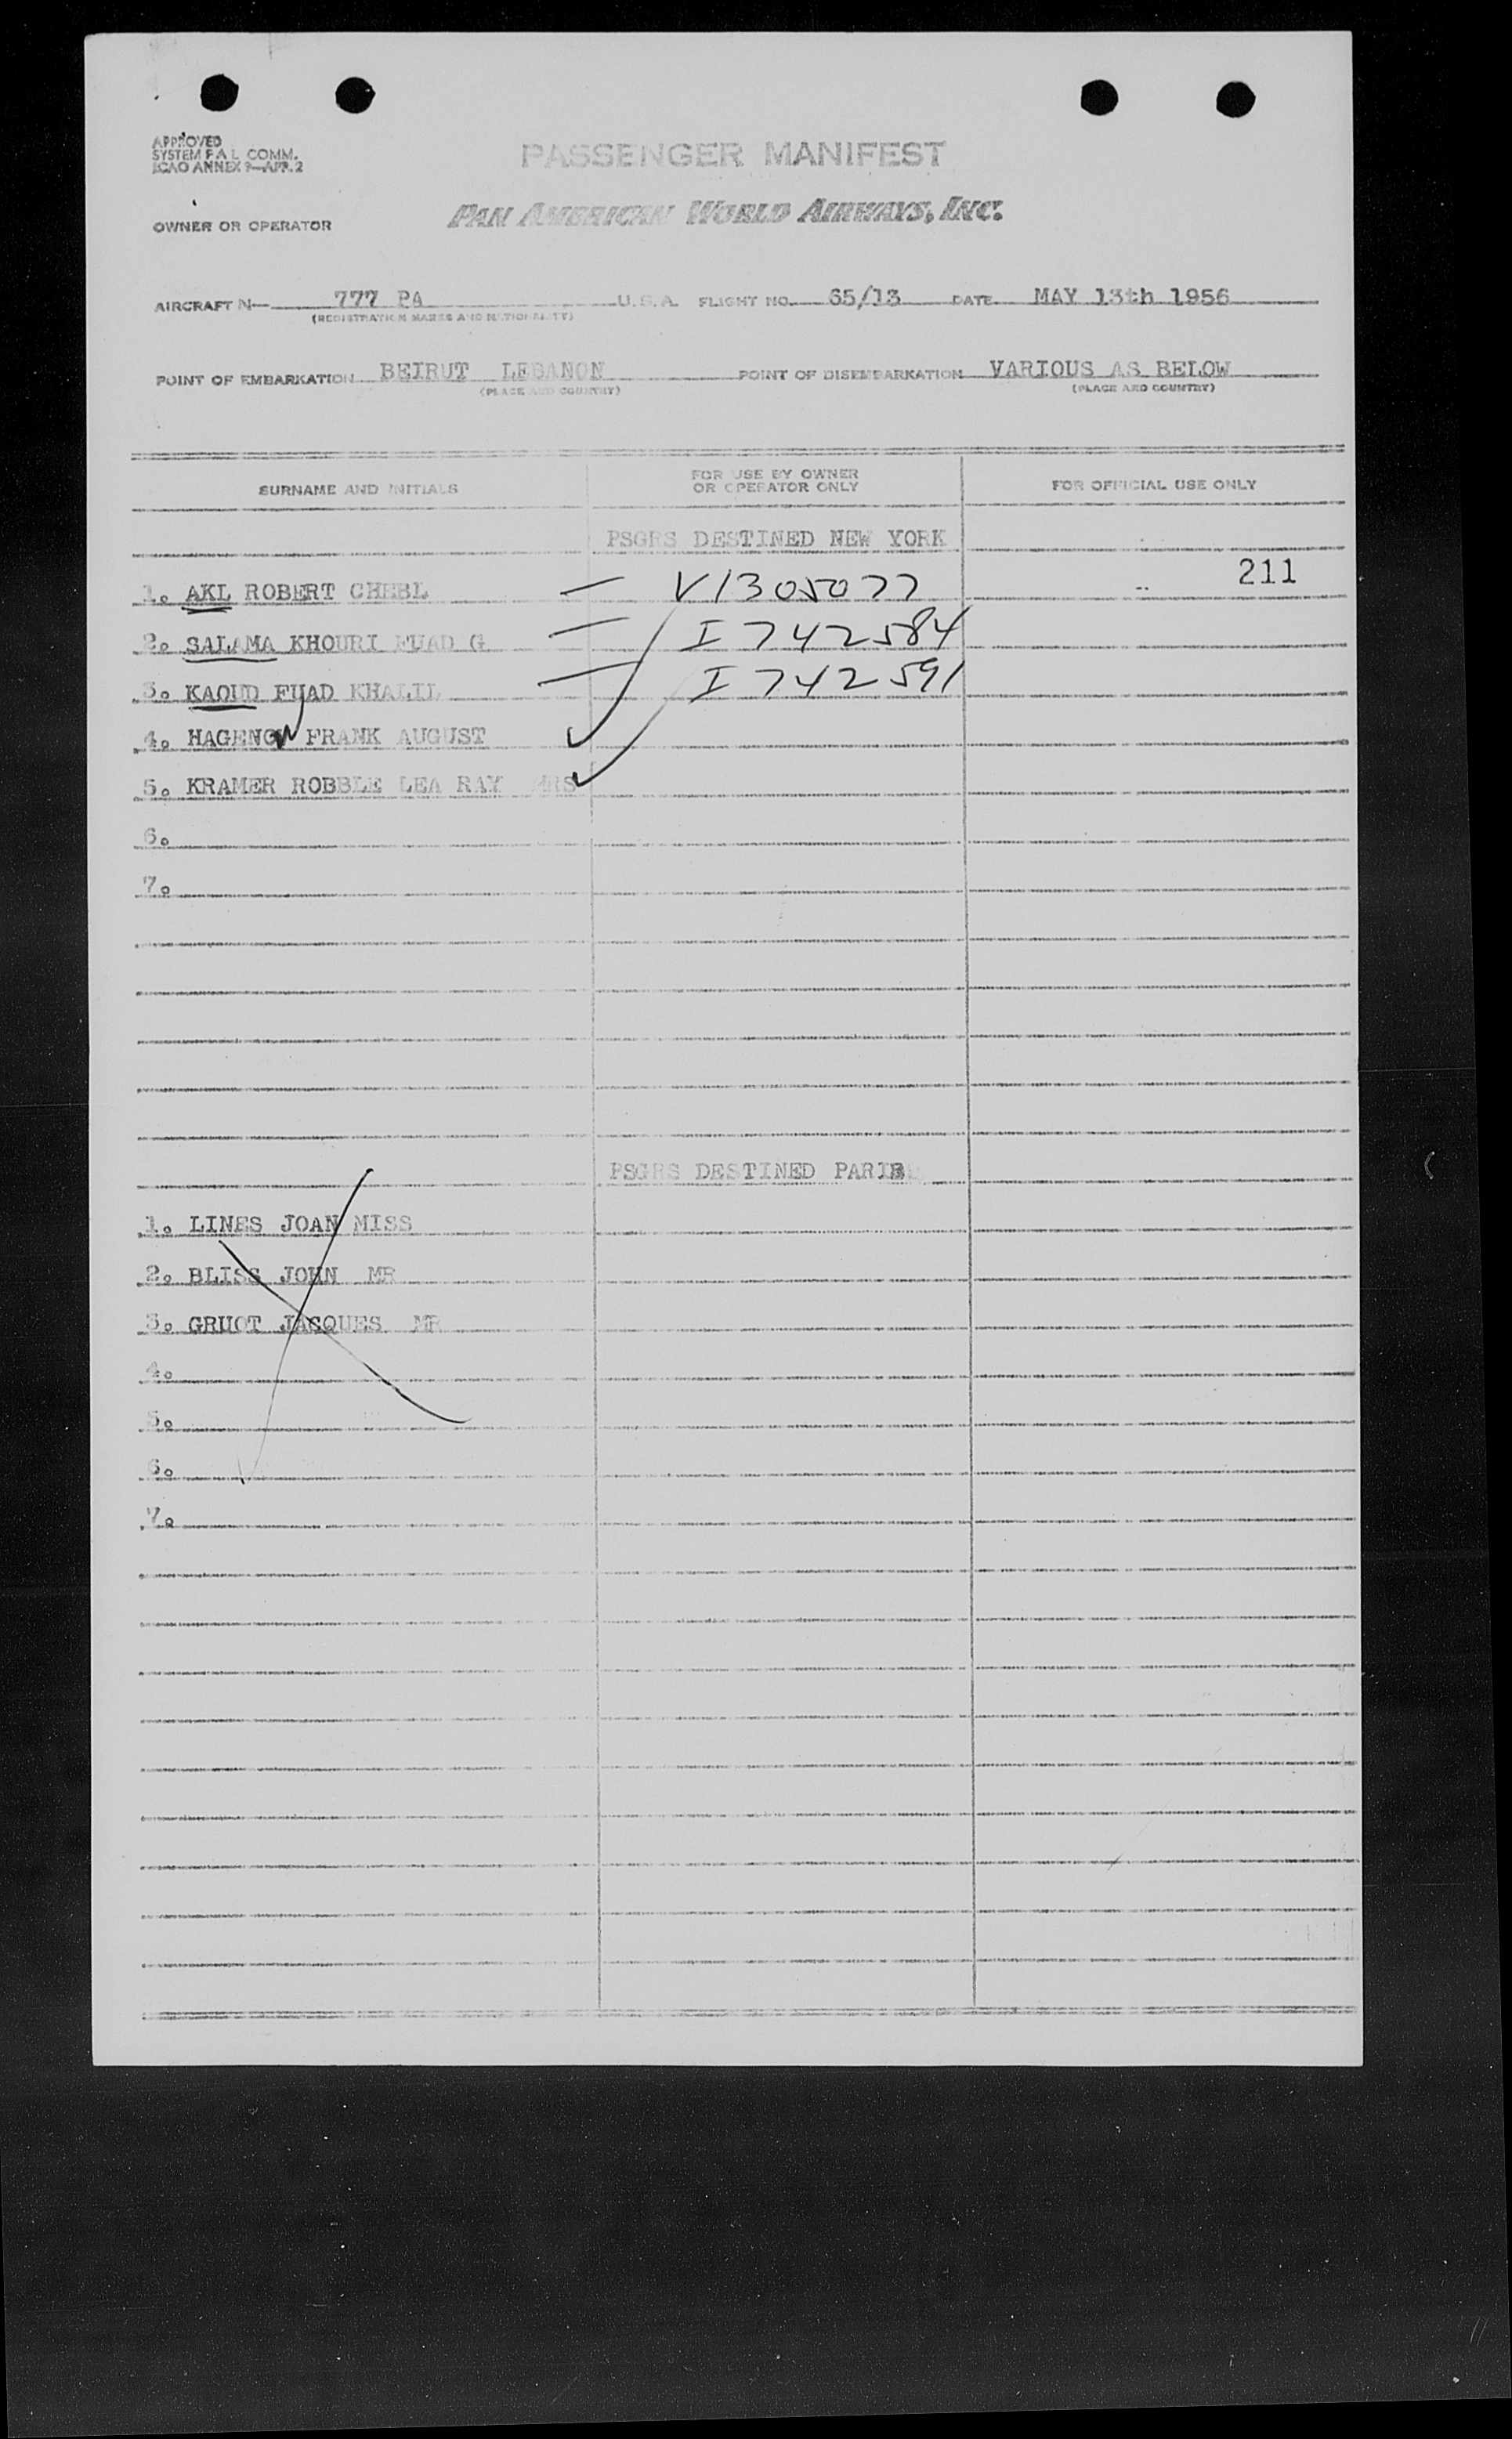 APPROVED
SYSTEM F A L COMM.
ICAO ANNEX 9—APP. 2
PASSENGER MANIFEST
OWNER OR OPERATOR PAN AMERICAN WORLD AIRWAYS, INC.
AIRCRAFT N— 777 PA U.S.A. FLIGHT NO. 65/13 DATE MAY 13th 1956
(REGISTRATION MARKS AND NATIONALITY)
POINT OF EMBARKATION BEIRUT LEBANON POINT OF DISEMBARKATION VARIOUS AS BELOW
(PLACE AND COUNTRY) (PLACE AND COUNTRY)
SURNAME AND INITIALS FOR USE BY OWNER OR OPERATOR ONLY FOR OFFICIAL USE ONLY
PSGRS DESTINED NEW YORK
211
1. AKL ROBERT CHEBL — V1305077
2. SALAMA KHOURI FUAD G — I 742584
3. KAOUD FUAD KHALIL — I 742591
4. HAGENOW FRANK AUGUST ✓
5. KRAMER ROBBLE LEA RAY MRS ✓
6.
7.
PSGRS DESTINED
1. LINES JOAN MISS
2. BLISS JOHN MR
3. GRUOT JACQUES MR
4.
5.
6.
7.